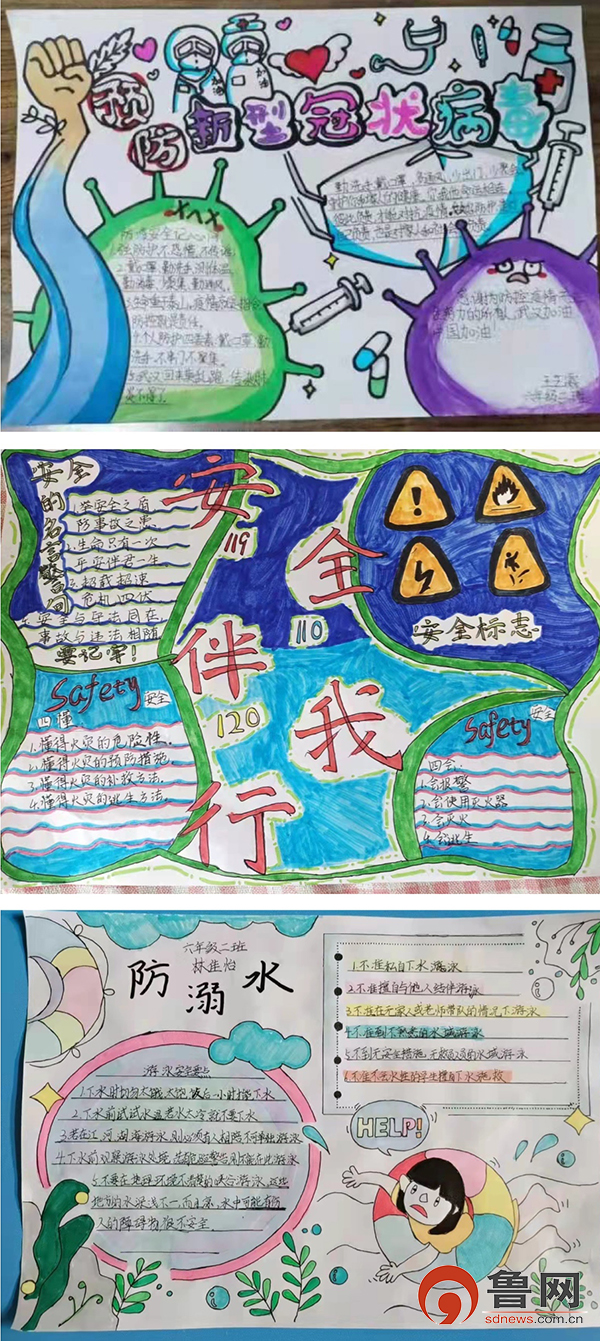 预防
新型冠状病毒
加油
加油
防疫安全记心间
1.强防护不恐慌,不信谣。
3.生命重于泰山,疫情就是命令
防控就是责任。
4.个人防护四要素:戴口罩、勤
洗手、不串门不聚集。
勤洗手、戴口罩、多通风、少出门、少聚会
感谢为防控疫情
在努力的所有人,武汉加油
中国加油!
六年级二班
安全的名言警句
1.筑安全之盾
防事故之患
2.生命只有一次
平安伴君一生
3.超载超速
危机四伏
4.安全与守法同在,
事故与违法相随
要记牢!
安全伴我行
119
110
120
安全标志
Safety 安全
四懂
1.懂得火灾的危险性.
2.懂得火灾的预防措施.
3.懂得火灾的扑救方法.
4.懂得火灾的逃生方法.
Safety 安全
四会
1.会报警
2.会使用灭火器
3.会灭火
4.会逃生
六年级二班
林佳怡
防溺水
游泳安全要点
1.下水时切勿太饿、太饱。饭后一小时才能下水
2.下水前试试水温,若水太冷,就不要下水
3.若在江、河、湖、海游泳,则必须有人相陪,不可单独游泳
4.下水前观察游泳处
5.不要在地理环境不清楚的峡谷游泳。这些
地方的水深浅不一,而且凉,水中可能有伤
人的障碍物,很不安全。
1.不准私自下水游泳
2.不准擅自与他人结伴游泳
3.不准在无家人或老师带队的情况下游泳
4.不准到不熟悉的水域游泳
5.不到无安全措施、无救援人员的水域游泳
6.不准不会水性的学生擅自下水施救
HELP!
鲁网
sdnews.com.cn